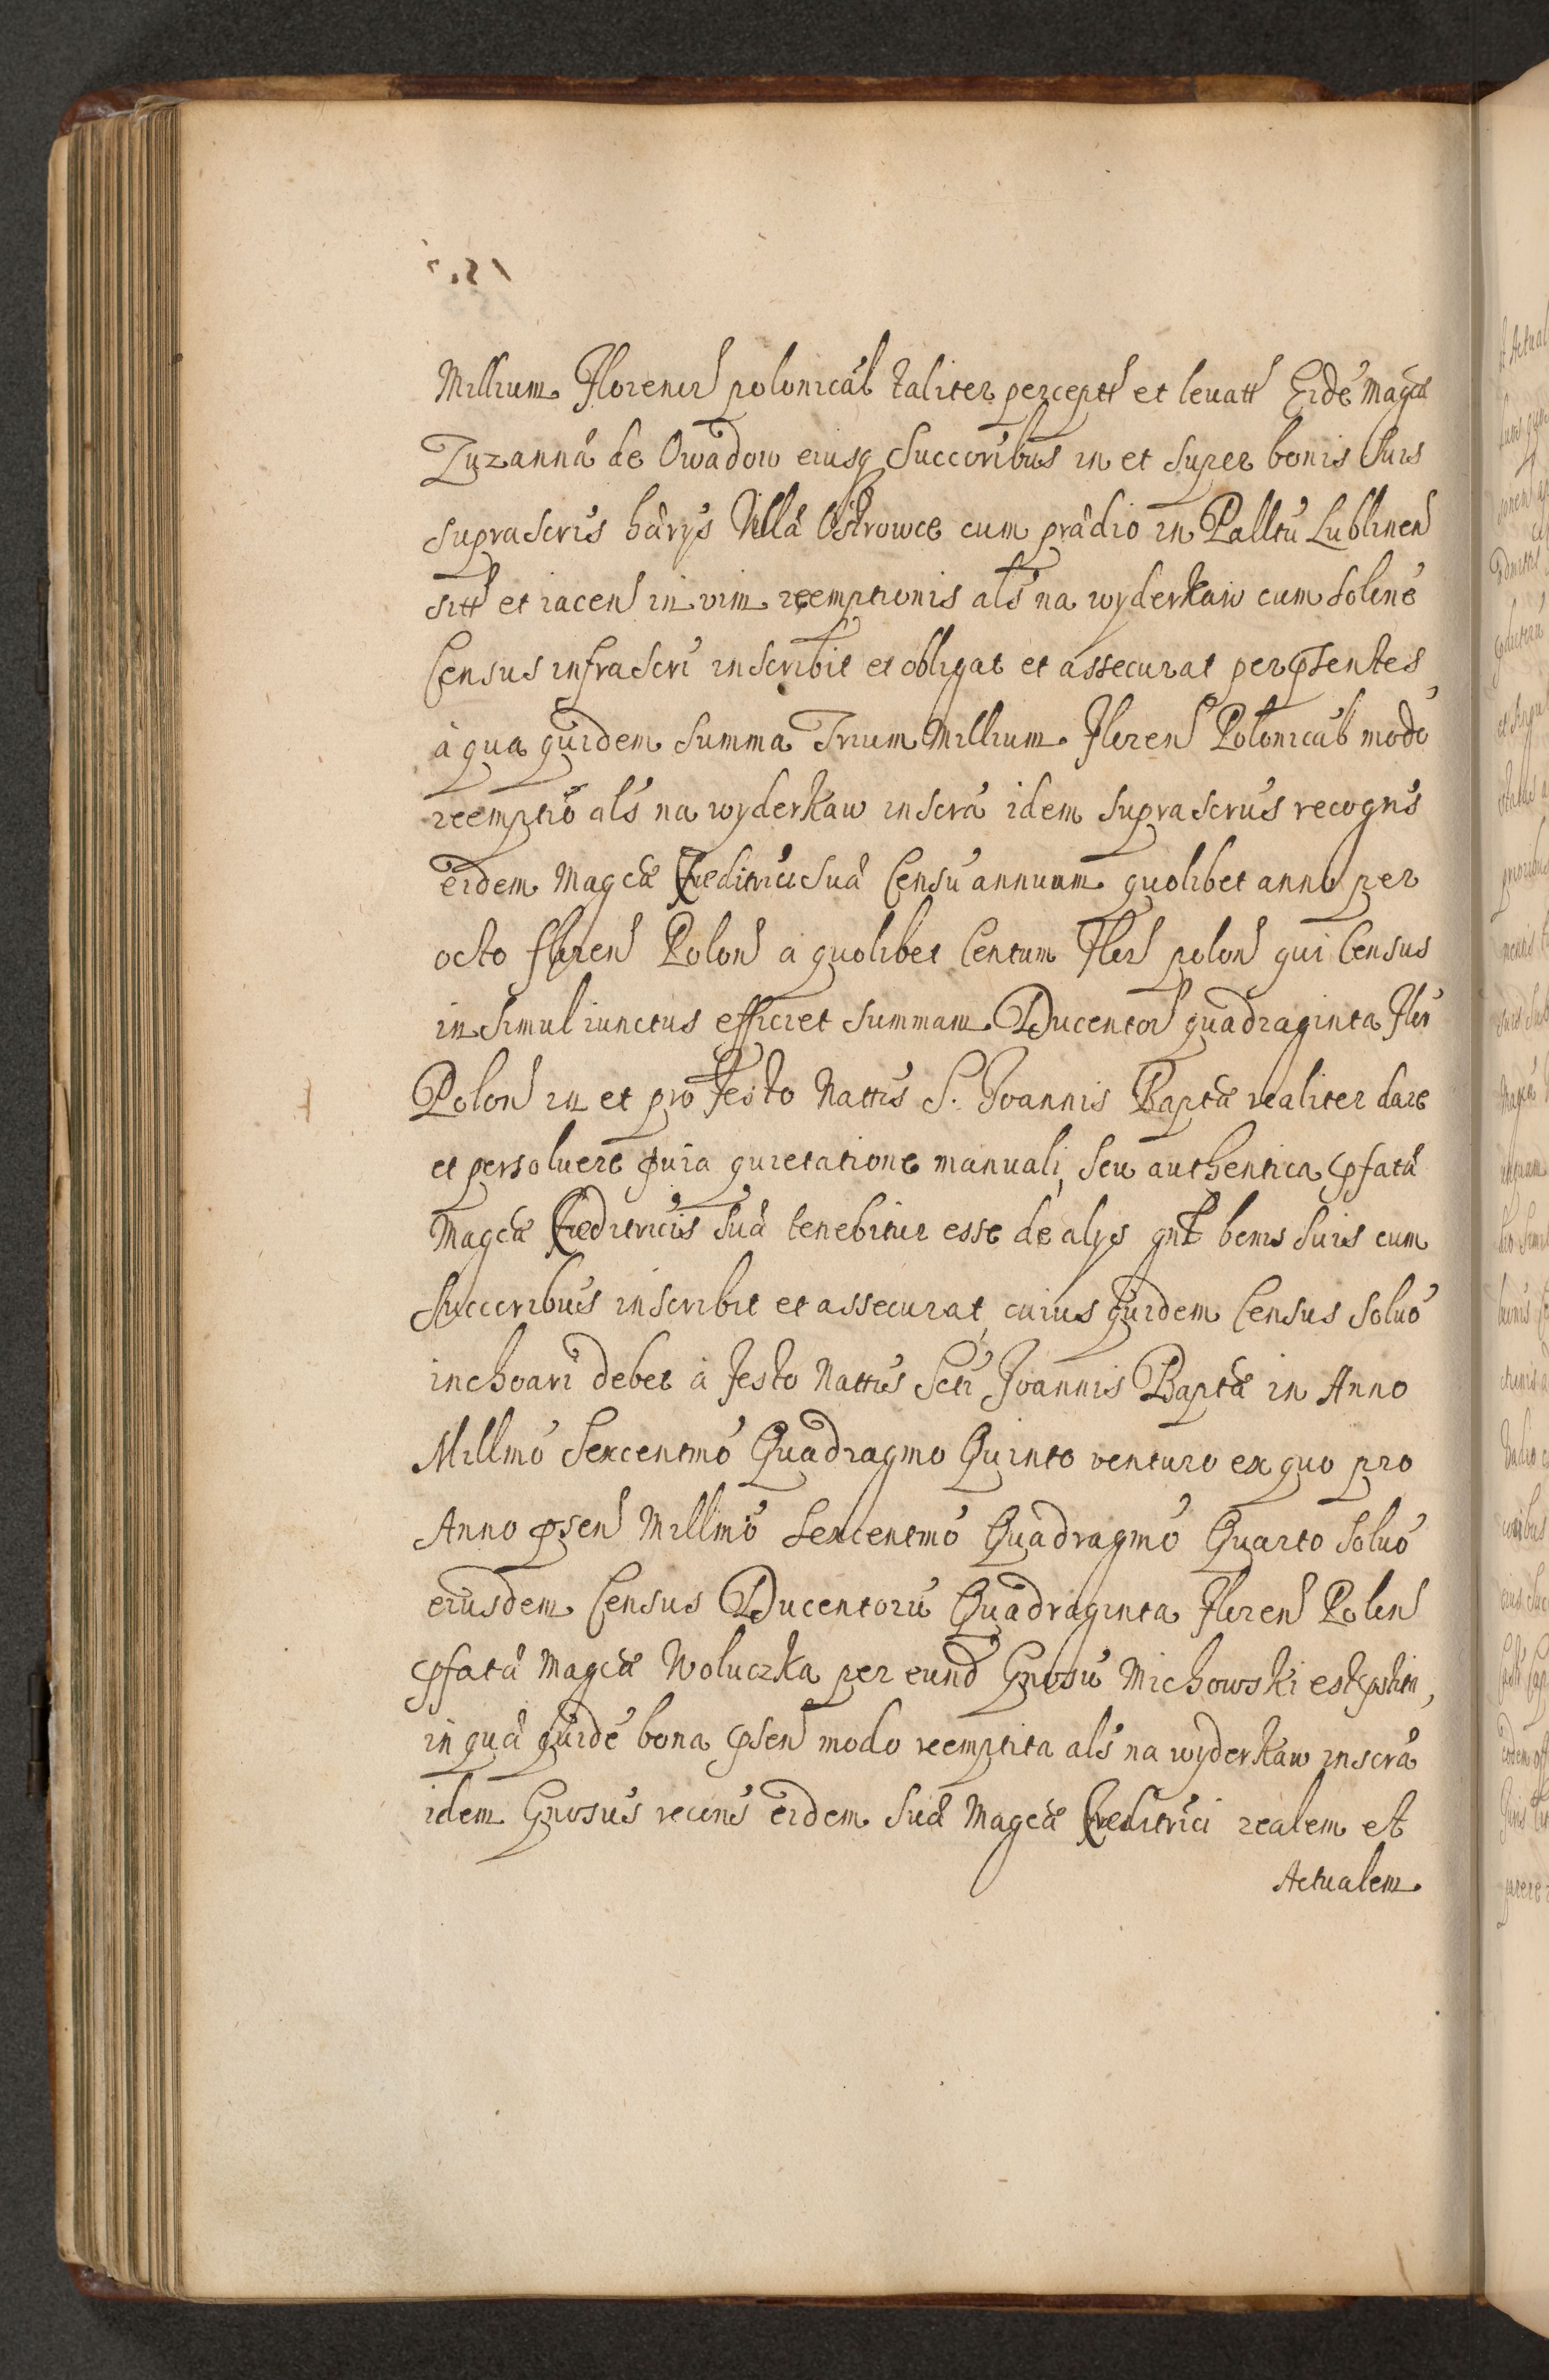 Millium Florenor polonicál taliter percept et levatt Eidé Magcæ
Zuzannæ de Owadow eiusq Succoribus in et super bonis Suis
supra scris hærys Villâ Ostrowce cum prædio in Palltu Lublinen
sitt et iacen in vim reemptionis als na wyderkaw cum Solne
Census infra scri inscribit et obligat et assecurat per psentes,
à qua quidem Summa Trium Millium Floren Polonicál modo
reemptio als na wyderkaw inscrá idem supra scrus recogns
eidem Magcæ Creditrici Suæ Censu annuum quolibet anno per
octo floren Polon a quolibet Centum Flor polon qui Census
in simul iunctus efficiet Summam Ducentor quadraginta Flor
Polon in et pro Festo Nattis S. Joannis Baptæ realiter dare
et persoluere quia quietatione manuali, seu authentica pfatæ
Magcæ Creditricis Suæ tenebitur esse de alys gnt bonis Suis cum
Succoribus inscribit et assecurat, cuius quidem Census Soluo
inchoari debet à Festo Nattis Scti Joannis Baptæ in Anno
Millmo Sexcentmo Quadragmo Quinto venturo ex quo pro
Anno psen Millmo Sexcentmo Quadragmo Quarto Soluo
eiusdem Census Ducentoru Quadraginta Floren Polon
pfatæ Magcæ Woluczka per eund Gnosu Michowski est pstita,
in quæ quidé bona psen modo reemptita als na wyderkaw inscrá
idem Gnosus recens eidem Suæ Magcæ Creditrici realem et
Actualem